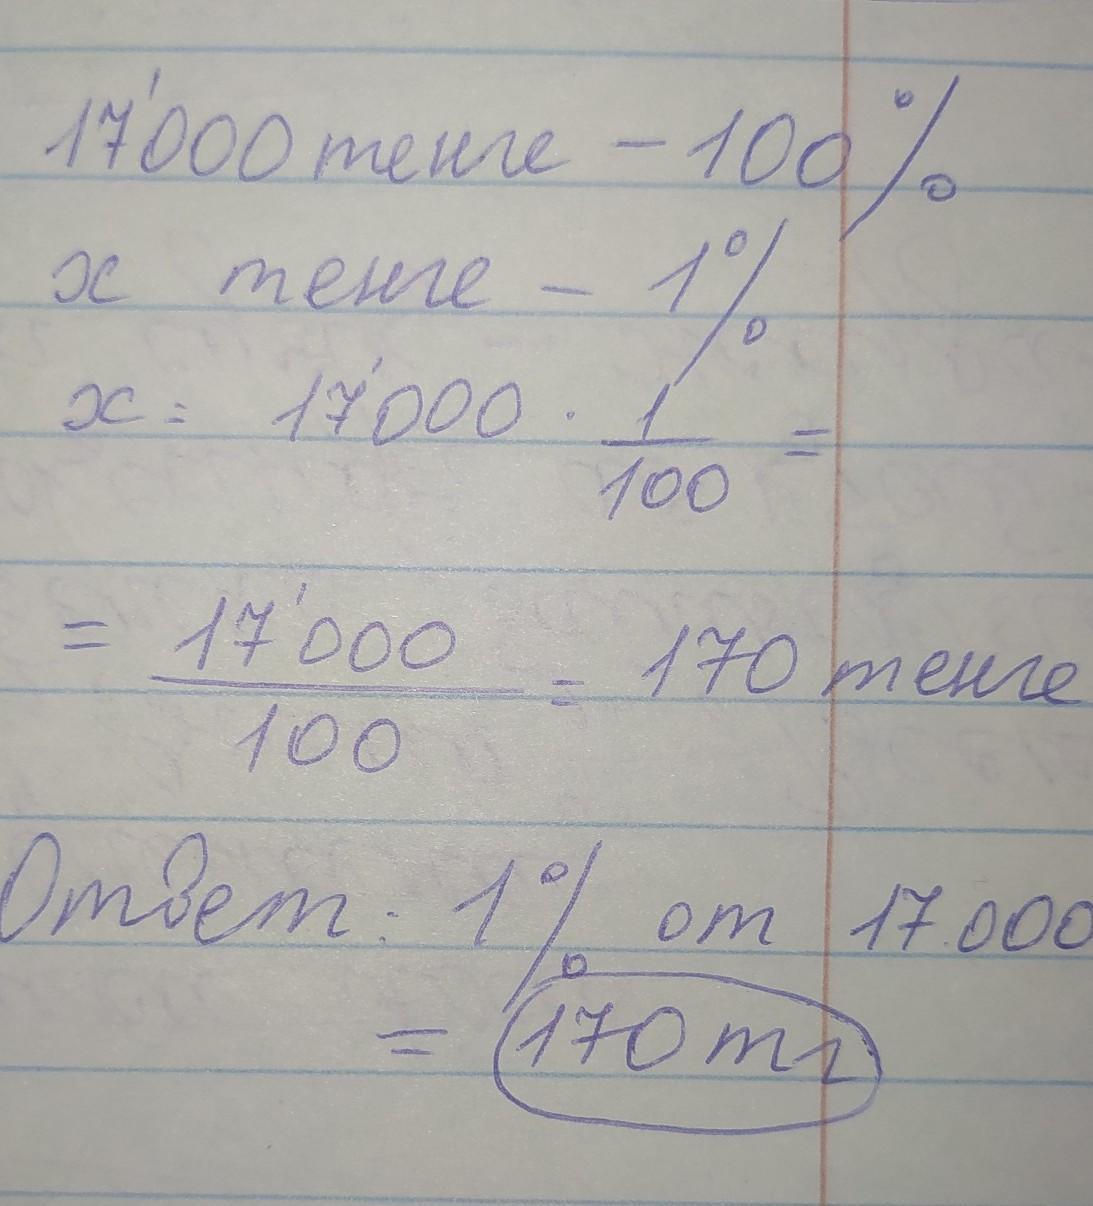 17'000 тенге – 100%
x тенге – 1%
x = 17'000 · 1/100 =
= 17'000/100 = 170 тенге
Ответ: 1% от 17.000
= 170 тг